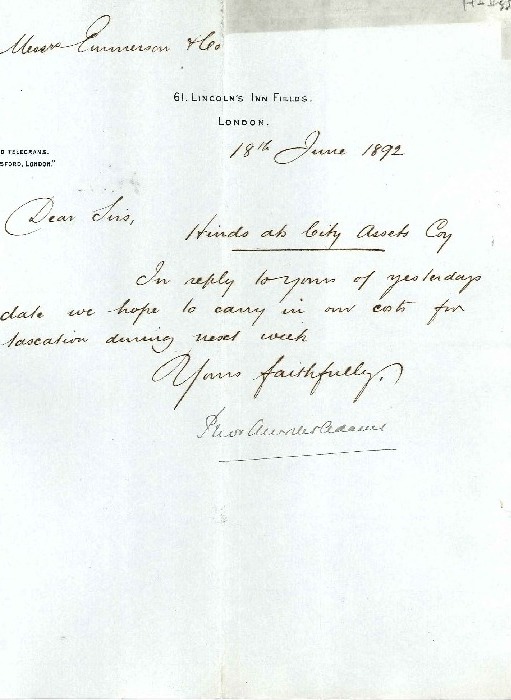 Messrs Emmerson & Co
61. LINCOLN'S INN FIELDS.
LONDON.
D TELEGRAMS.
SFORD, LONDON."
18th June 1892
Dear Sirs,
Hinds ats City Assets Coy
In reply to yours of yesterdays
date we hope to carry in our costs for
taxation during next week
Yours faithfully,